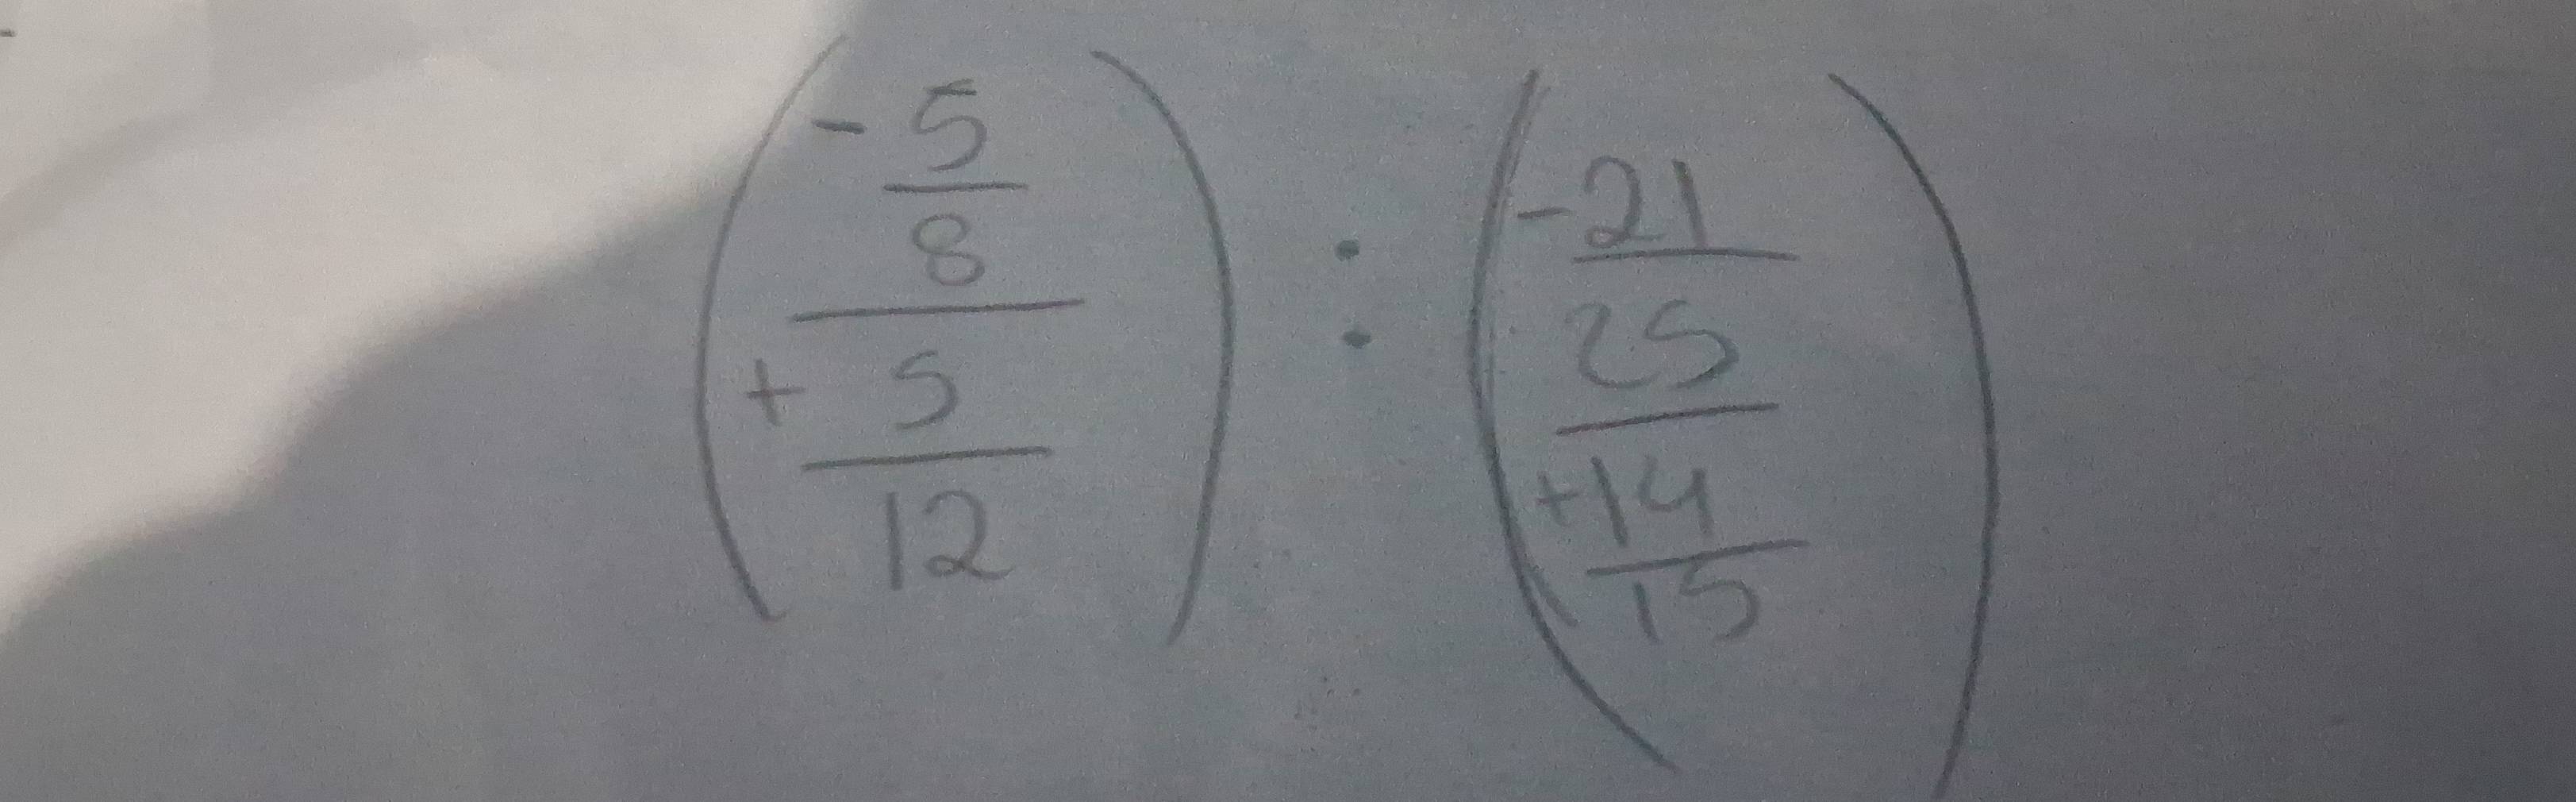 ( - 5/8 / + 5/12 ) : ( - 21/25 / + 14/15 )